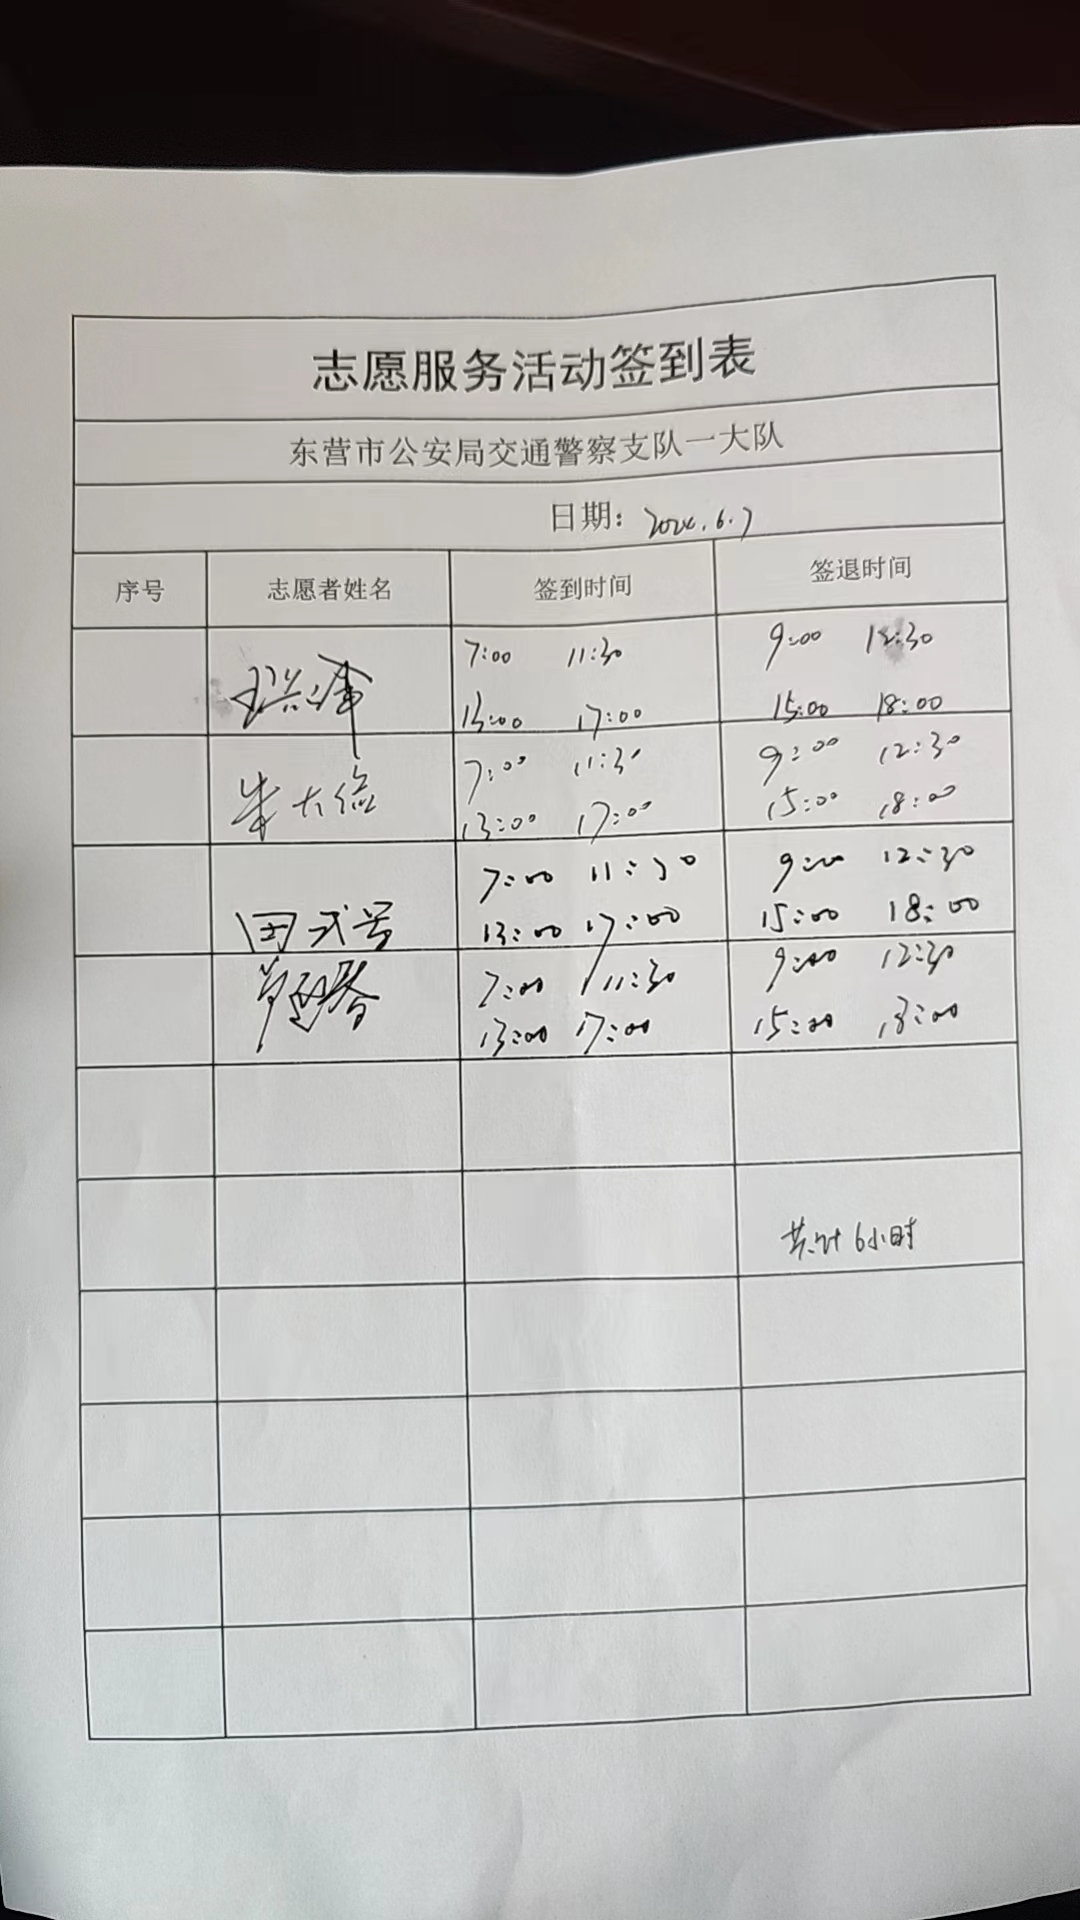 志愿服务活动签到表
东营市公安局交通警察支队一大队
日期：2024.6.7
序号 志愿者姓名 签到时间 签退时间
7:00 11:30 9:00 12:30
13:00 17:00 15:00 18:00
朱大俭 7:00 11:30 9:00 12:30
13:00 17:00 15:00 18:00
7:00 11:30 9:00 12:30
田弍号 13:00 17:00 15:00 18:00
7:00 11:30 9:00 12:30
13:00 17:00 15:00 18:00
共计6小时